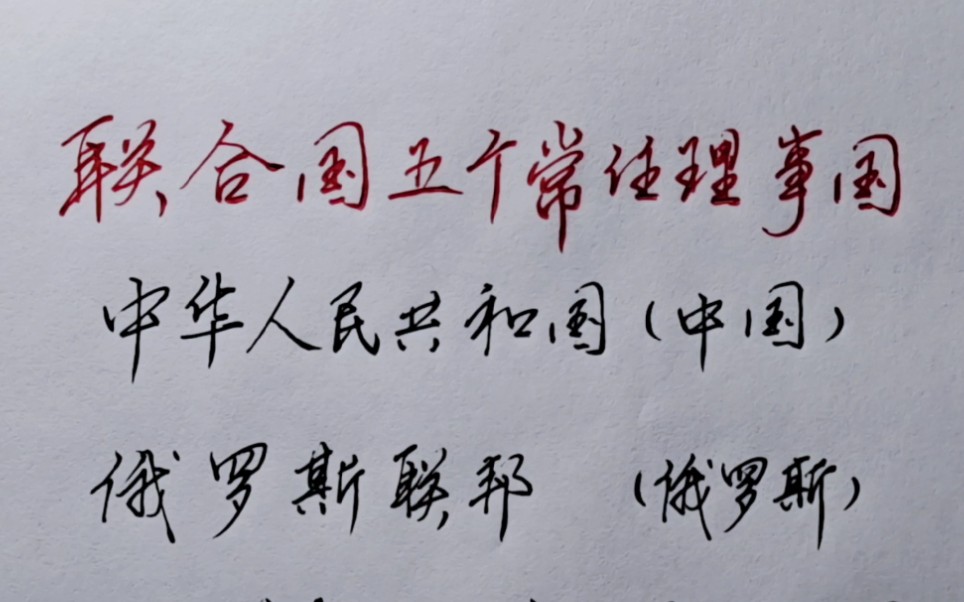 联合国五个常任理事国
中华人民共和国(中国)
俄罗斯联邦 (俄罗斯)